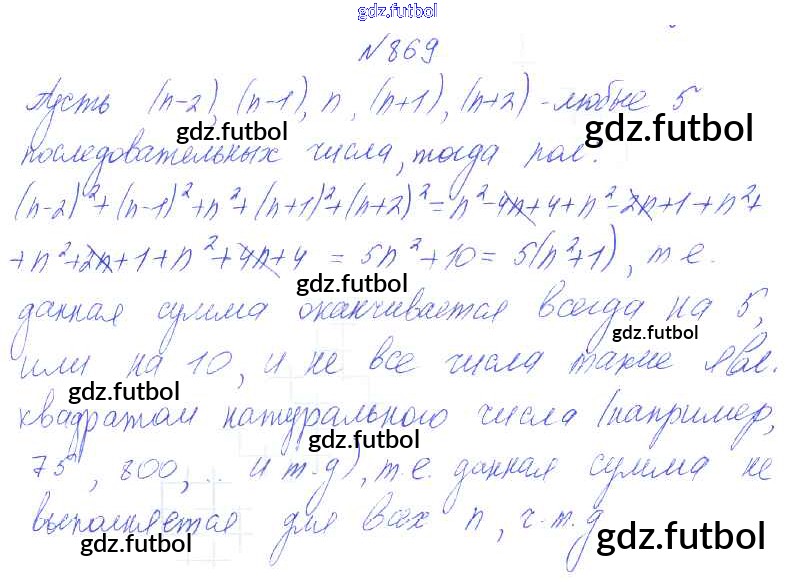 gdz.futbol
№869
Пусть (n-2), (n-1), n, (n+1), (n+2) - любые 5
gdz.futbol
gdz.futbol
последовательных числа, тогда пол.
(n-2)²+(n-1)²+n²+(n+1)²+(n+2)²=n²-4n+4+n²-2n+1+n²+
+n²+2n+1+n²+4n+4 = 5n²+10= 5(n²+1), т.е.
gdz.futbol
данная сумма оканчивается всегда на 5,
gdz.futbol
или на 10, и не все числа такие явл.
gdz.futbol
квадратом натурального числа (например,
gdz.futbol
75, 800, .. и т.д), т.е. данная сумма не
выполняется для всех n, ч.т.д
gdz.futbol
gdz.futbol